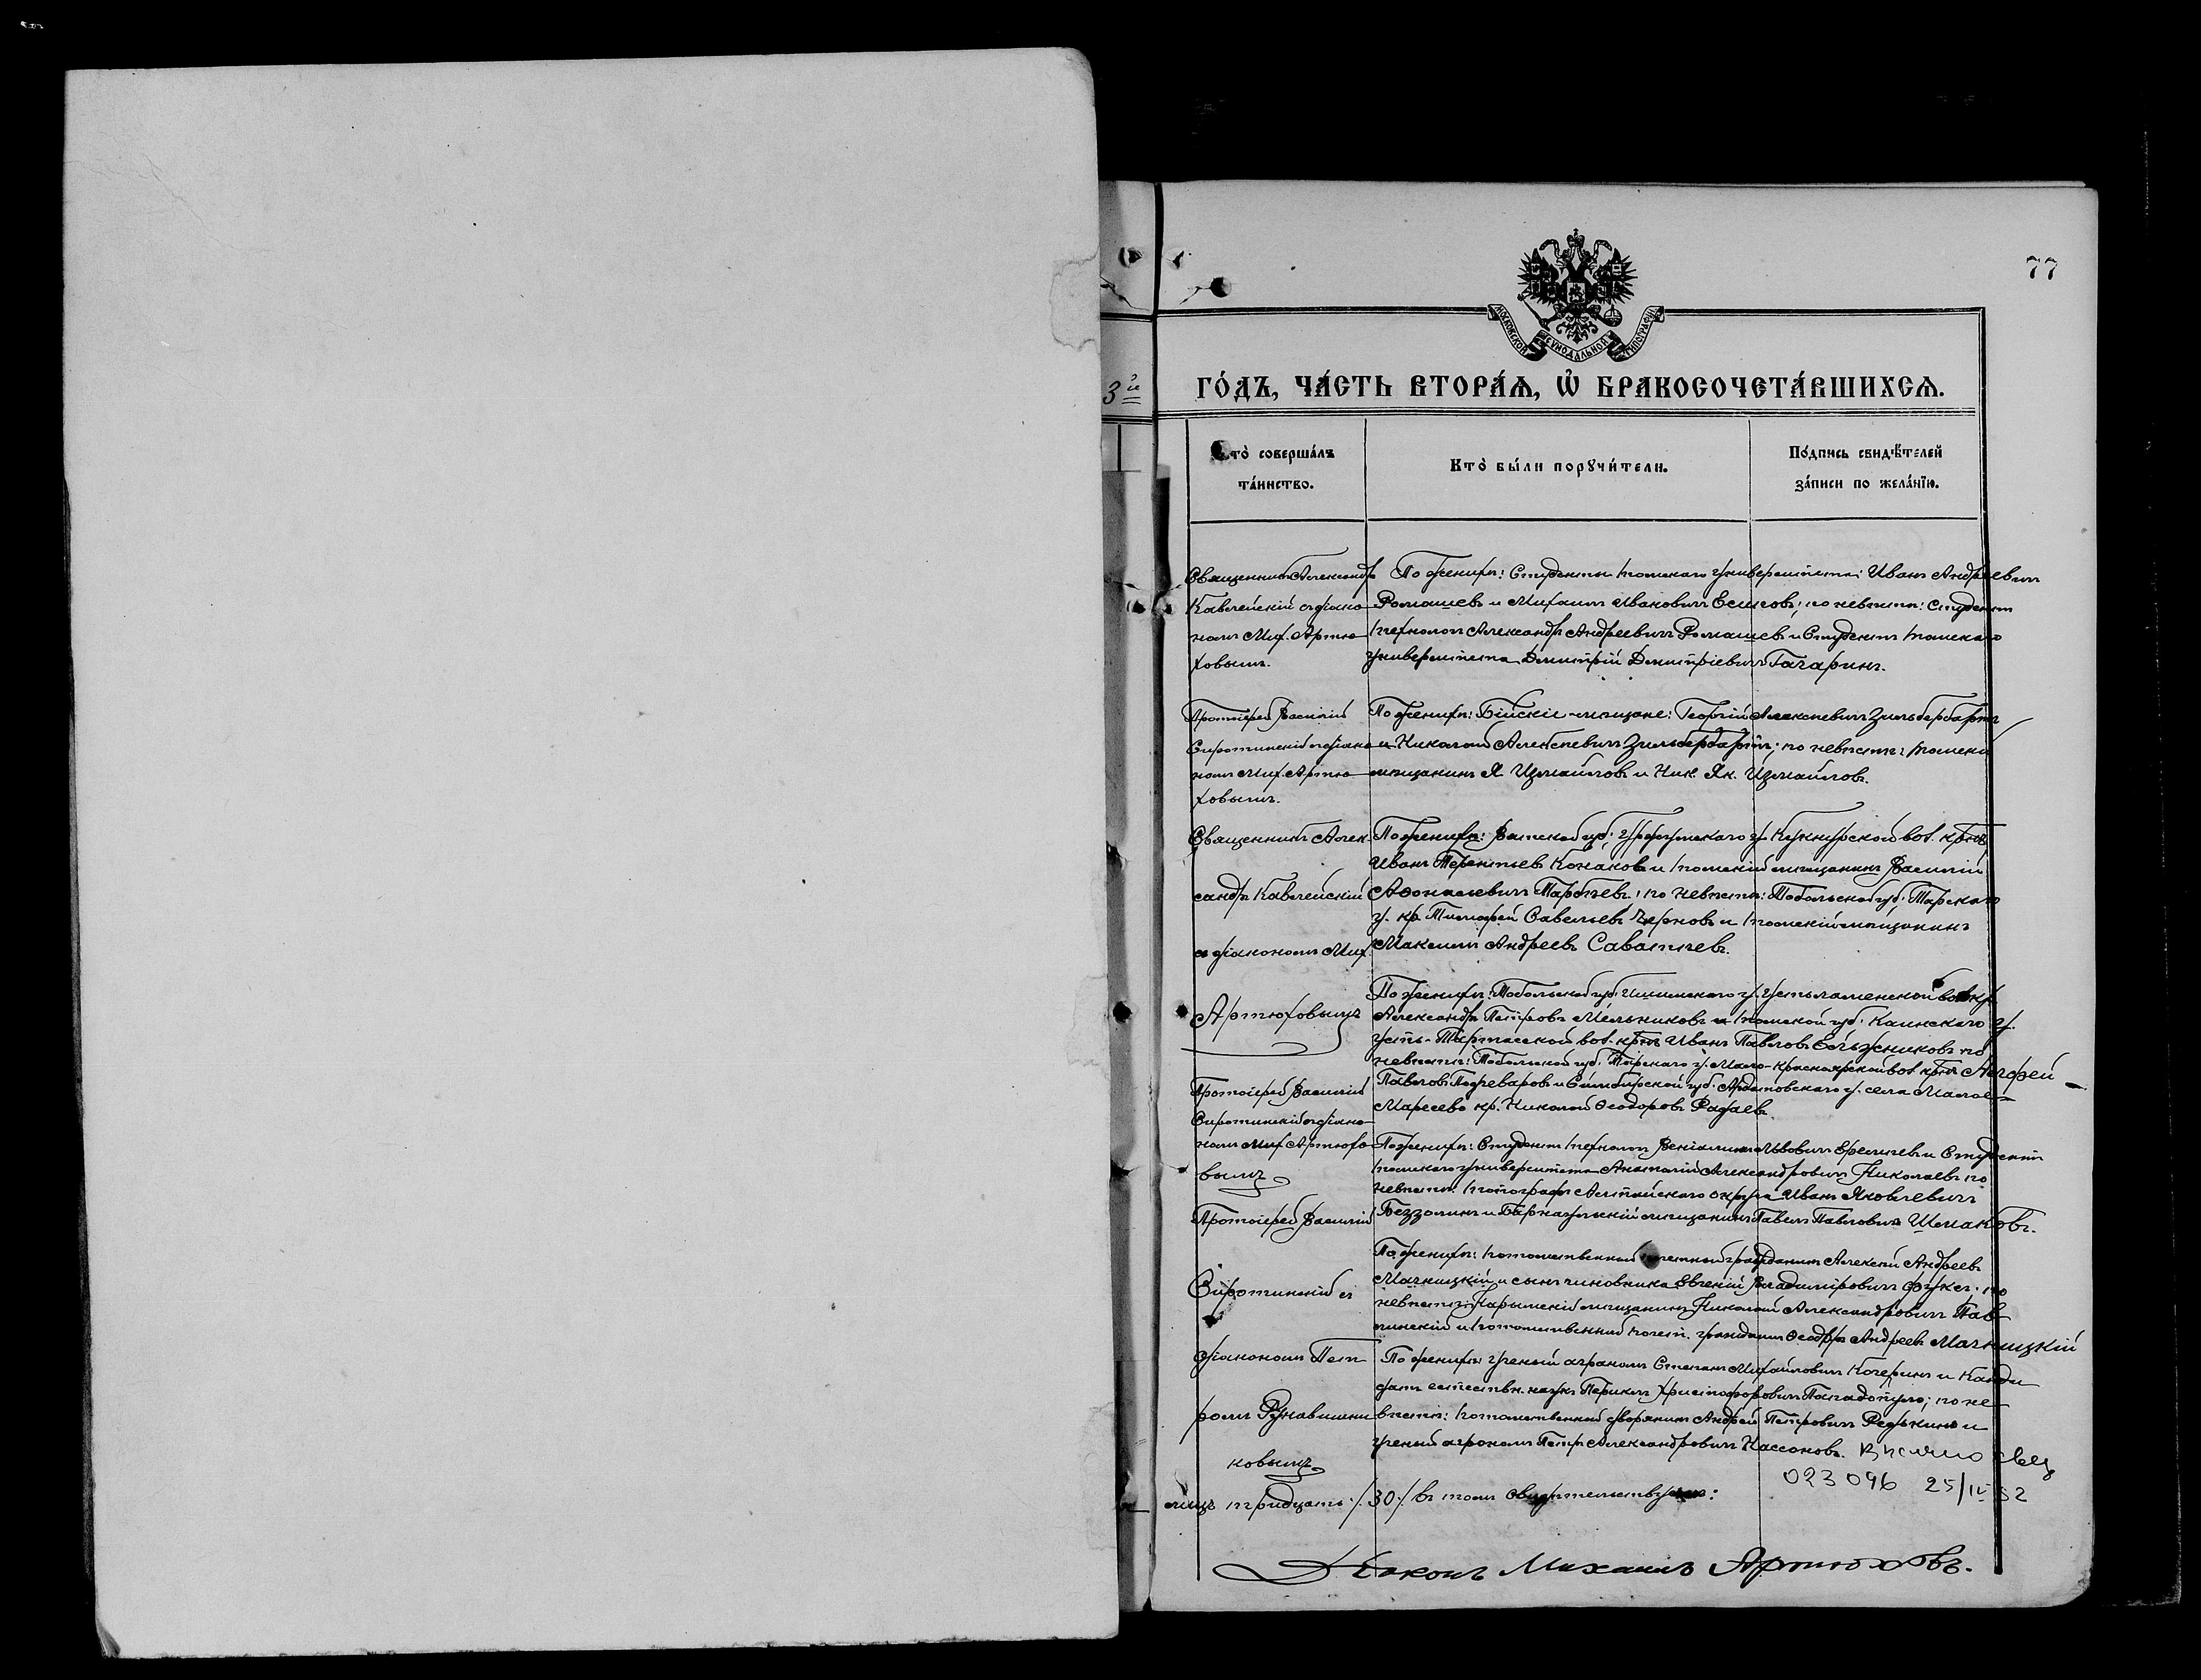 77
МОСКОВСКОЙ СѴНОДАЛЬНОЙ ТИПОГРАФІИ
3й
ГО́ДЪ, ЧА́СТЬ ВТОРА́Ѧ, Ѽ БРАКОСОЧЕТА́ВШИХСѦ.
Кто̀ соверша́лъ
та́инство.
Кто̀ бы́ли порꙋчи́тели.
По́дпись свидѣ́телей
за́писи по жела́нїю.
Священникъ Александръ
Кавлейскій съ діако
номъ Мих. Артю
ховымъ.
По женихѣ: Студенты Томскаго университета: Иванъ Андреевичъ
Ромашевъ и Михаилъ Ивановичъ Есиповъ; по невѣстѣ: Студентъ
технологъ Александръ Андреевичъ Ромашевъ и Студентъ Томскаго
университета Димитрій Димитріевичъ Гагаринъ.
Протоіерей Василій
Сиротинскій съ діако
номъ Мих. Артю
ховымъ.
По женихѣ: Бійскіе мѣщане: Георгій Алексѣевичъ Зильбербартъ
и Николай Алексѣевичъ Зильбербартъ; по невѣстѣ: Томскій
мѣщанинъ Я. Измайловъ и Ник. Як. Измайловъ.
Священникъ Алек
сандръ Кавлейскій
съ діакономъ Мих.
Артюховымъ
По женихѣ: Вятской губ. Уржумскаго у. Кукнурской вол. кр-нъ
Иванъ Терентьевъ Конаковъ и Томскій мѣщанинъ Василій
Аѳонасьевичъ; по невѣстѣ: Тобольской губ. Тарскаго
у. кр. Тимофей Савельевъ Черновъ и Томскій мѣщанинъ
Максимъ Андреевъ Саватѣевъ.
По женихѣ: Тобольской губ. Ишимскаго у. Устьламенской вол. кр.
Александръ Петровъ Мельниковъ и Томской губ. Каинскаго у.
Усть-Тартасской вол. кр-нъ Иванъ Павловъ по
невѣстѣ: Тобольской губ. Тарскаго у. Мало-Красноярской вол. кр-нъ Андрей
Павловъ и Симбирской губ. Ардатовскаго у. села Малое
Маресево кр. Николай Ѳеодоровъ Радаевъ.
Протоіерей Василій
Сиротинскій съ діако
номъ Мих. Артюхо
вымъ
По женихѣ: Студентъ технологъ Веніаминъ Львовичъ Еремѣевъ и Студентъ
Томскаго университета Анатолій Александровичъ Николаевъ по
невѣстѣ: топографъ Алтайскаго округа Иванъ Яковлевичъ
и Барнаульскій мѣщанинъ Павелъ Павловичъ Шмаковъ.
Протоіерей Василій
Сиротинскій съ
діакономъ Пет
ромъ Рукавишни
ковымъ
По женихѣ: потомственный почетный гражданинъ Алексѣй Андреевъ
Мачницкій и сынъ чиновника Евгеній Владимировичъ Фуксъ; по
невѣстѣ: Нарымскій мѣщанинъ Николай Александровичъ Пав
линскій и потомственный почет. гражданинъ Ѳеодоръ Андреевъ Мачницкій
По женихѣ: ученый агрономъ Степанъ Михайловичъ Кочергинъ и Канди
датъ естествен. наукъ Периклъ Христофоровичъ Пападопуло; по не
вѣстѣ: потомственный дворянинъ Андрей Петровичъ Редькинъ и
ученый агрономъ Петръ Александровичъ Нассоновъ.
023096 25/IV 52
лицъ тридцать /30/ въ томъ свидѣтельствуемъ:
Діаконъ Михаилъ Артюховъ.